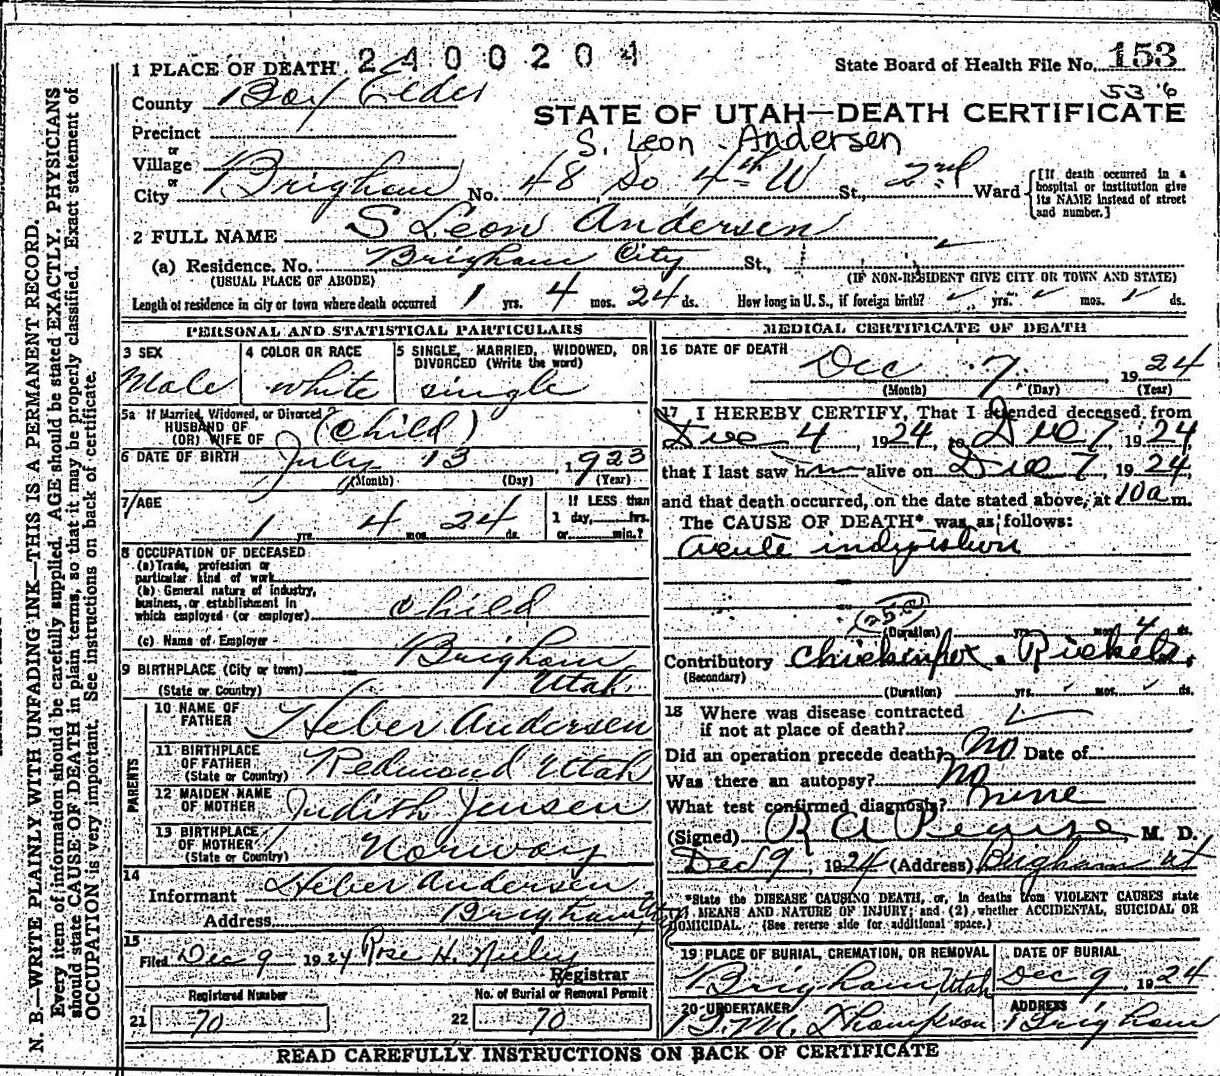 2400204
1 PLACE OF DEATH
State Board of Health File No. 153
County Box Elder
53 6
STATE OF UTAH—DEATH CERTIFICATE
Precinct
S. Leon Andersen
or
Village
or
City Brigham No. 48 So 4th W St., 2nd Ward
[If death occurred in a
hospital or institution give
its NAME instead of street
and number.]
2 FULL NAME S Leon Andersen
(a) Residence. No. Brigham City St.,
(USUAL PLACE OF ABODE) (IF NON-RESIDENT GIVE CITY OR TOWN AND STATE)
Length of residence in city or town where death occurred 1 yrs. 4 mos. 24 ds. How long in U. S., if foreign birth? yrs. mos. ds.
PERSONAL AND STATISTICAL PARTICULARS
3 SEX
Male
4 COLOR OR RACE
white
5 SINGLE, MARRIED, WIDOWED, OR
DIVORCED (Write the word)
single
5a If Married, Widowed, or Divorced
HUSBAND OF
(OR) WIFE OF (child)
6 DATE OF BIRTH July 13, 1923
(Month) (Day) (Year)
7 AGE
1 yrs. 4 mos. 24 ds.
If LESS than
1 day, hrs.
or min.?
8 OCCUPATION OF DECEASED
(a) Trade, profession or
particular kind of work
(b) General nature of industry,
business, or establishment in
which employed (or employer) child
(c) Name of Employer
9 BIRTHPLACE (City or town) Brigham
(State or Country) Utah
PARENTS
10 NAME OF
FATHER Heber Andersen
11 BIRTHPLACE
OF FATHER
(State or Country) Redmond Utah
12 MAIDEN NAME
OF MOTHER Judith Jensen
13 BIRTHPLACE
OF MOTHER
(State or Country) Norway
14
Informant Heber Andersen
Address Brigham
15
Filed Dec 9 1924 Rose H.
Registrar
Registered Number
21 70
No. of Burial or Removal Permit
22 70
MEDICAL CERTIFICATE OF DEATH
16 DATE OF DEATH
Dec 7 1924
(Month) (Day) (Year)
17 I HEREBY CERTIFY, That I attended deceased from
Dec 4, 1924, to Dec 7, 1924,
that I last saw him alive on Dec 7, 1924,
and that death occurred, on the date stated above, at 10a m.
The CAUSE OF DEATH* was as follows:
Acute indigestion
(Duration) yrs. mos. 4 ds.
Contributory Chickenpox. Rickets.
(Secondary)
(Duration) yrs. mos. ds.
18 Where was disease contracted
if not at place of death?
Did an operation precede death? No Date of
Was there an autopsy? No
What test confirmed diagnosis? none
(Signed) R A Pearse, M. D.
Dec 9, 1924 (Address) Brigham ut
*State the DISEASE CAUSING DEATH, or, in deaths from VIOLENT CAUSES state
(1) MEANS AND NATURE OF INJURY; and (2) whether ACCIDENTAL, SUICIDAL OR
HOMICIDAL. (See reverse side for additional space.)
19 PLACE OF BURIAL, CREMATION, OR REMOVAL
Brigham, Utah
DATE OF BURIAL
Dec 9, 1924
20 UNDERTAKER
M. Thompson
ADDRESS
Brigham
READ CAREFULLY INSTRUCTIONS ON BACK OF CERTIFICATE
N. B.—WRITE PLAINLY WITH UNFADING INK—THIS IS A PERMANENT RECORD.
Every item of information should be carefully supplied. AGE should be stated EXACTLY. PHYSICIANS
should state CAUSE OF DEATH in plain terms, so that it may be properly classified. Exact statement of
OCCUPATION is very important. See instructions on back of certificate.